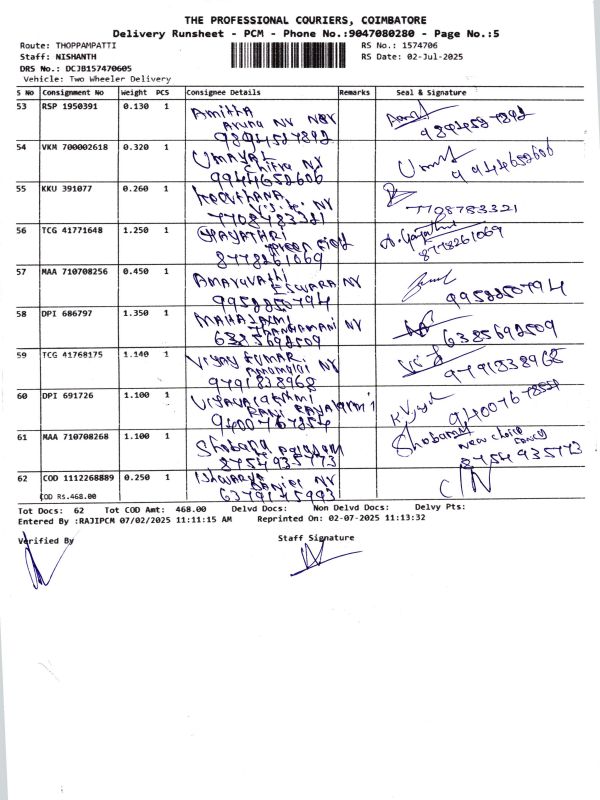 THE PROFESSIONAL COURIERS, COIMBATORE
Delivery Runsheet - PCM - Phone No.:9047080280 - Page No.:5
Route: THOPPAMPATTI RS No.: 1574706
Staff: NISHANTH RS Date: 02-Jul-2025
DRS No.: DCJB157470605
Vehicle: Two Wheeler Delivery
S No Consignment No Weight PCS Consignee Details Remarks Seal & Signature
53 RSP 1950391 0.130 1 Amitha
Aruna NV
9894527892 9894527892
54 VKM 700002618 0.320 1 UMAYAL
Chitra NY
9944652606 9944652606
55 KKU 391077 0.260 1 Keerthana
NY
7708783321 7708783321
56 TCG 41771648 1.250 1 GAYATHRI
Green field
8778261069 8778261069
57 MAA 710708256 0.450 1 Amaravathi
ESWARA NY
9952250794 9952250794
58 DPI 686797 1.350 1 MAHALAXMI
Thangamani NY
6385692509 6385692509
59 TCG 41768175 1.140 1 VIJAY KUMAR.
Annamalai NY
9791838968 9791838968
60 DPI 691726 1.100 1 Vijayalakshmi
Rani Rayalaxmi
9400767854 9400767854
61 MAA 710708268 1.100 1 Shobana Shobana
new choice
8754935773 8754935773
62 COD 1112268889 0.250 1 Ishwarya C/N
Daniel NY
COD Rs.468.00 6379145993
Tot Docs: 62 Tot COD Amt: 468.00 Delvd Docs: Non Delvd Docs: Delvy Pts:
Entered By :RAJIPCM 07/02/2025 11:11:15 AM Reprinted On: 02-07-2025 11:13:32
Verified By Staff Signature